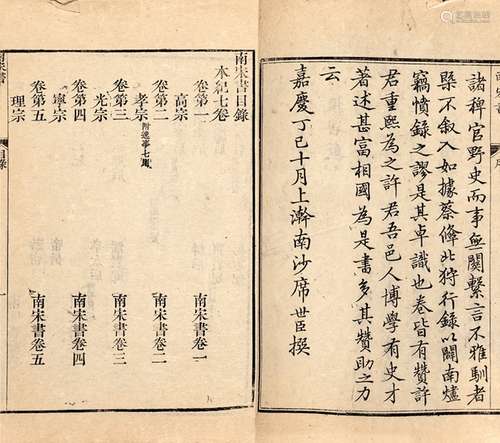 諸稗官野史而事無關繫言不雅馴者
槩不叙入如據蔡鞗北狩行錄以闢南燼
竊憤錄之謬是其卓識也卷皆有贊許
君重熙為之許君吾邑人博學有史才
著述甚富相國為是書多其贊助之力
云
嘉慶丁巳十月上澣南沙席世臣撰
南宋書目錄
本紀七卷
卷第一 南宋書卷一
高宗
卷第二 南宋書卷二
孝宗 附逸事七則
卷第三 南宋書卷三
光宗
卷第四 南宋書卷四
寧宗
卷第五 南宋書卷五
理宗
南宋書 目錄 一